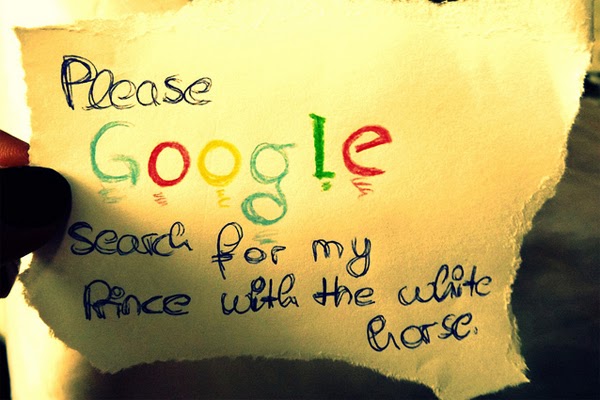 Please
Google
search for my
Prince with the white
horse.